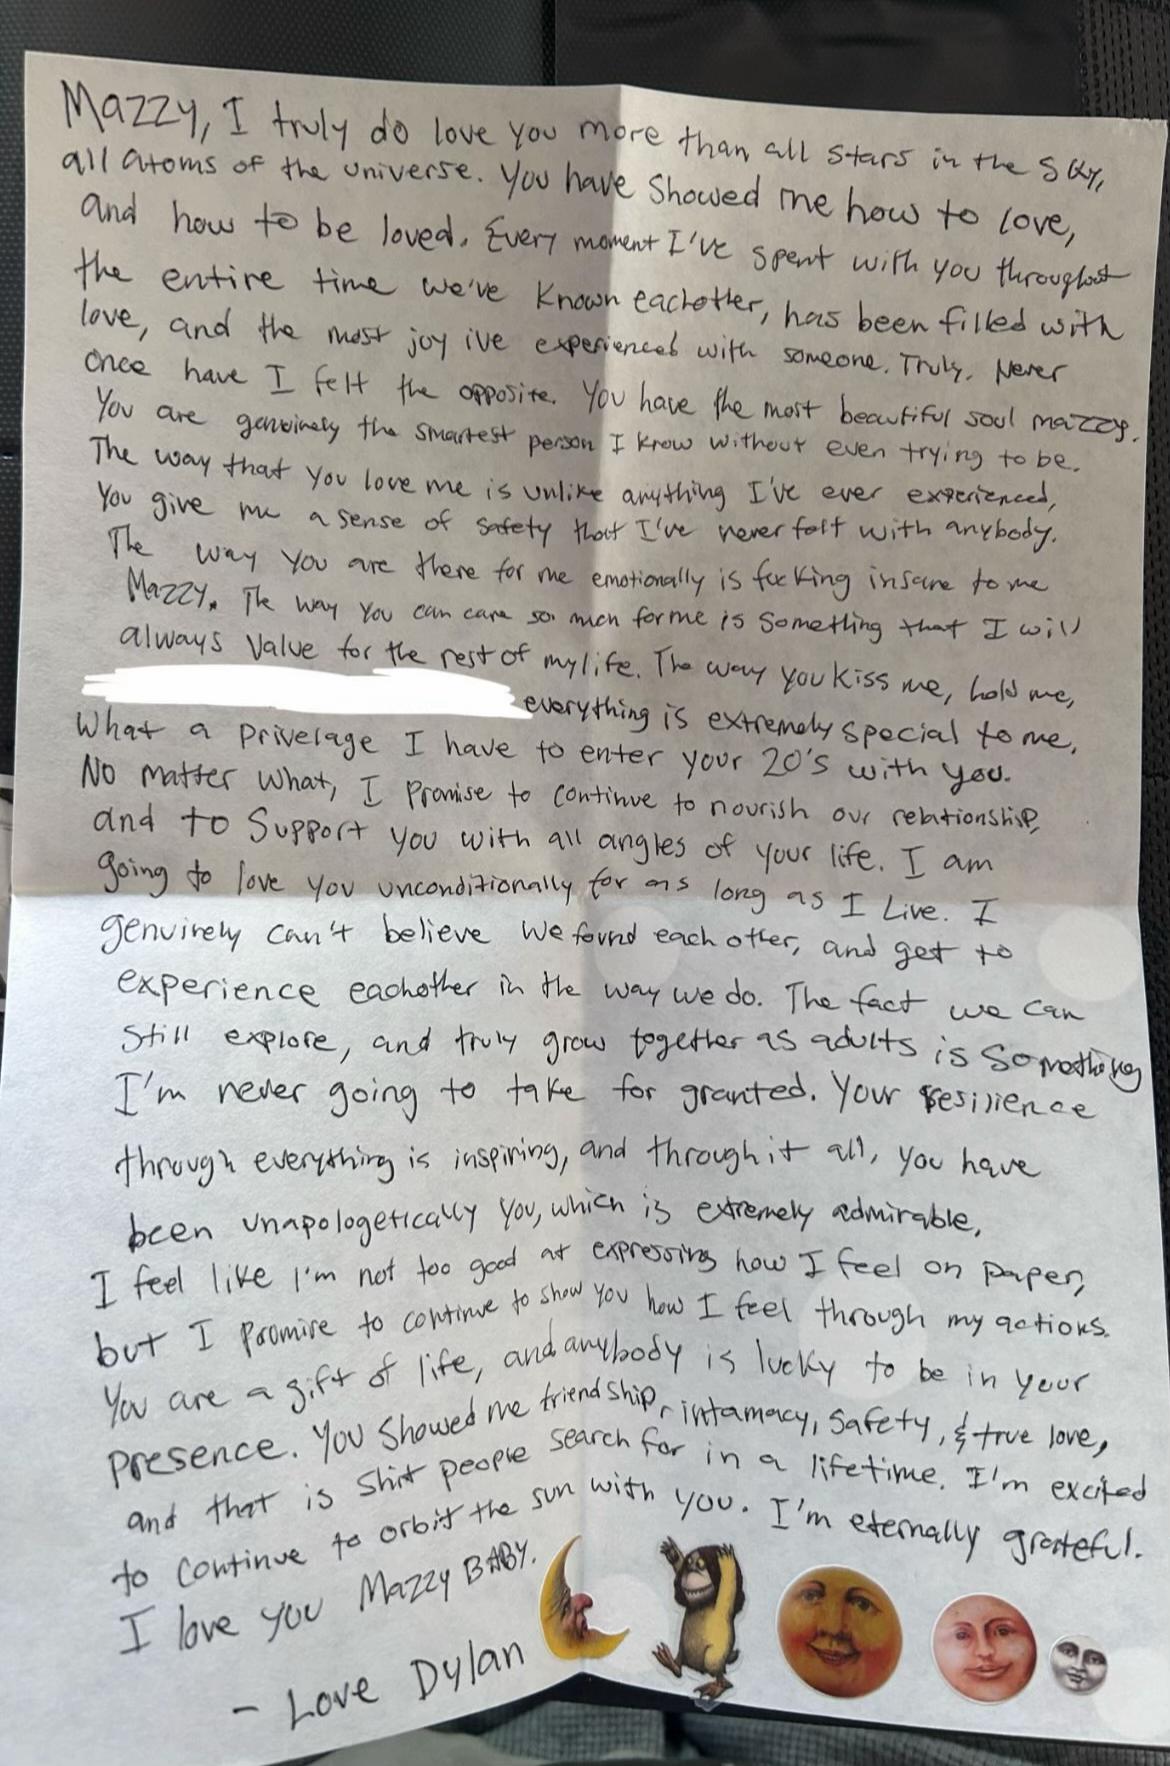 Mazzy, I truly do love you more than all stars in the sky,
all atoms of the universe. You have showed me how to love,
and how to be loved. Every moment I've spent with you throughout
the entire time we've known eachother, has been filled with
love, and the most joy ive experienced with someone. Truly. Never
once have I felt the opposite. You have the most beautiful soul mazzy.
You are genuinely the smartest person I know without even trying to be.
The way that you love me is unlike anything I've ever experienced,
You give me a sense of safety that I've never felt with anybody.
The way you are there for me emotionally is fucking insane to me
Mazzy. The way you can care so much for me is something that I will
always value for the rest of my life. The way you kiss me, hold me,
everything is extremely special to me.
What a privelage I have to enter your 20's with you.
No matter what, I promise to continue to nourish our relationship,
and to support you with all angles of your life. I am
going to love you unconditionally for as long as I Live. I
genuinely can't believe we found each other, and get to
experience eachother in the way we do. The fact we can
still explore, and truly grow together as adults is something
I'm never going to take for granted. Your resilience
through everything is inspiring, and through it all, you have
been unapologetically you, which is extremely admirable,
I feel like I'm not too good at expressing how I feel on paper,
but I promise to continue to show you how I feel through my actions.
You are a gift of life, and anybody is lucky to be in your
presence. You showed me friendship, intamacy, safety, & true love,
and that is shit people search for in a lifetime. I'm excited
to continue to orbit the sun with you. I'm eternally grateful.
I love you Mazzy BABY.
- Love Dylan